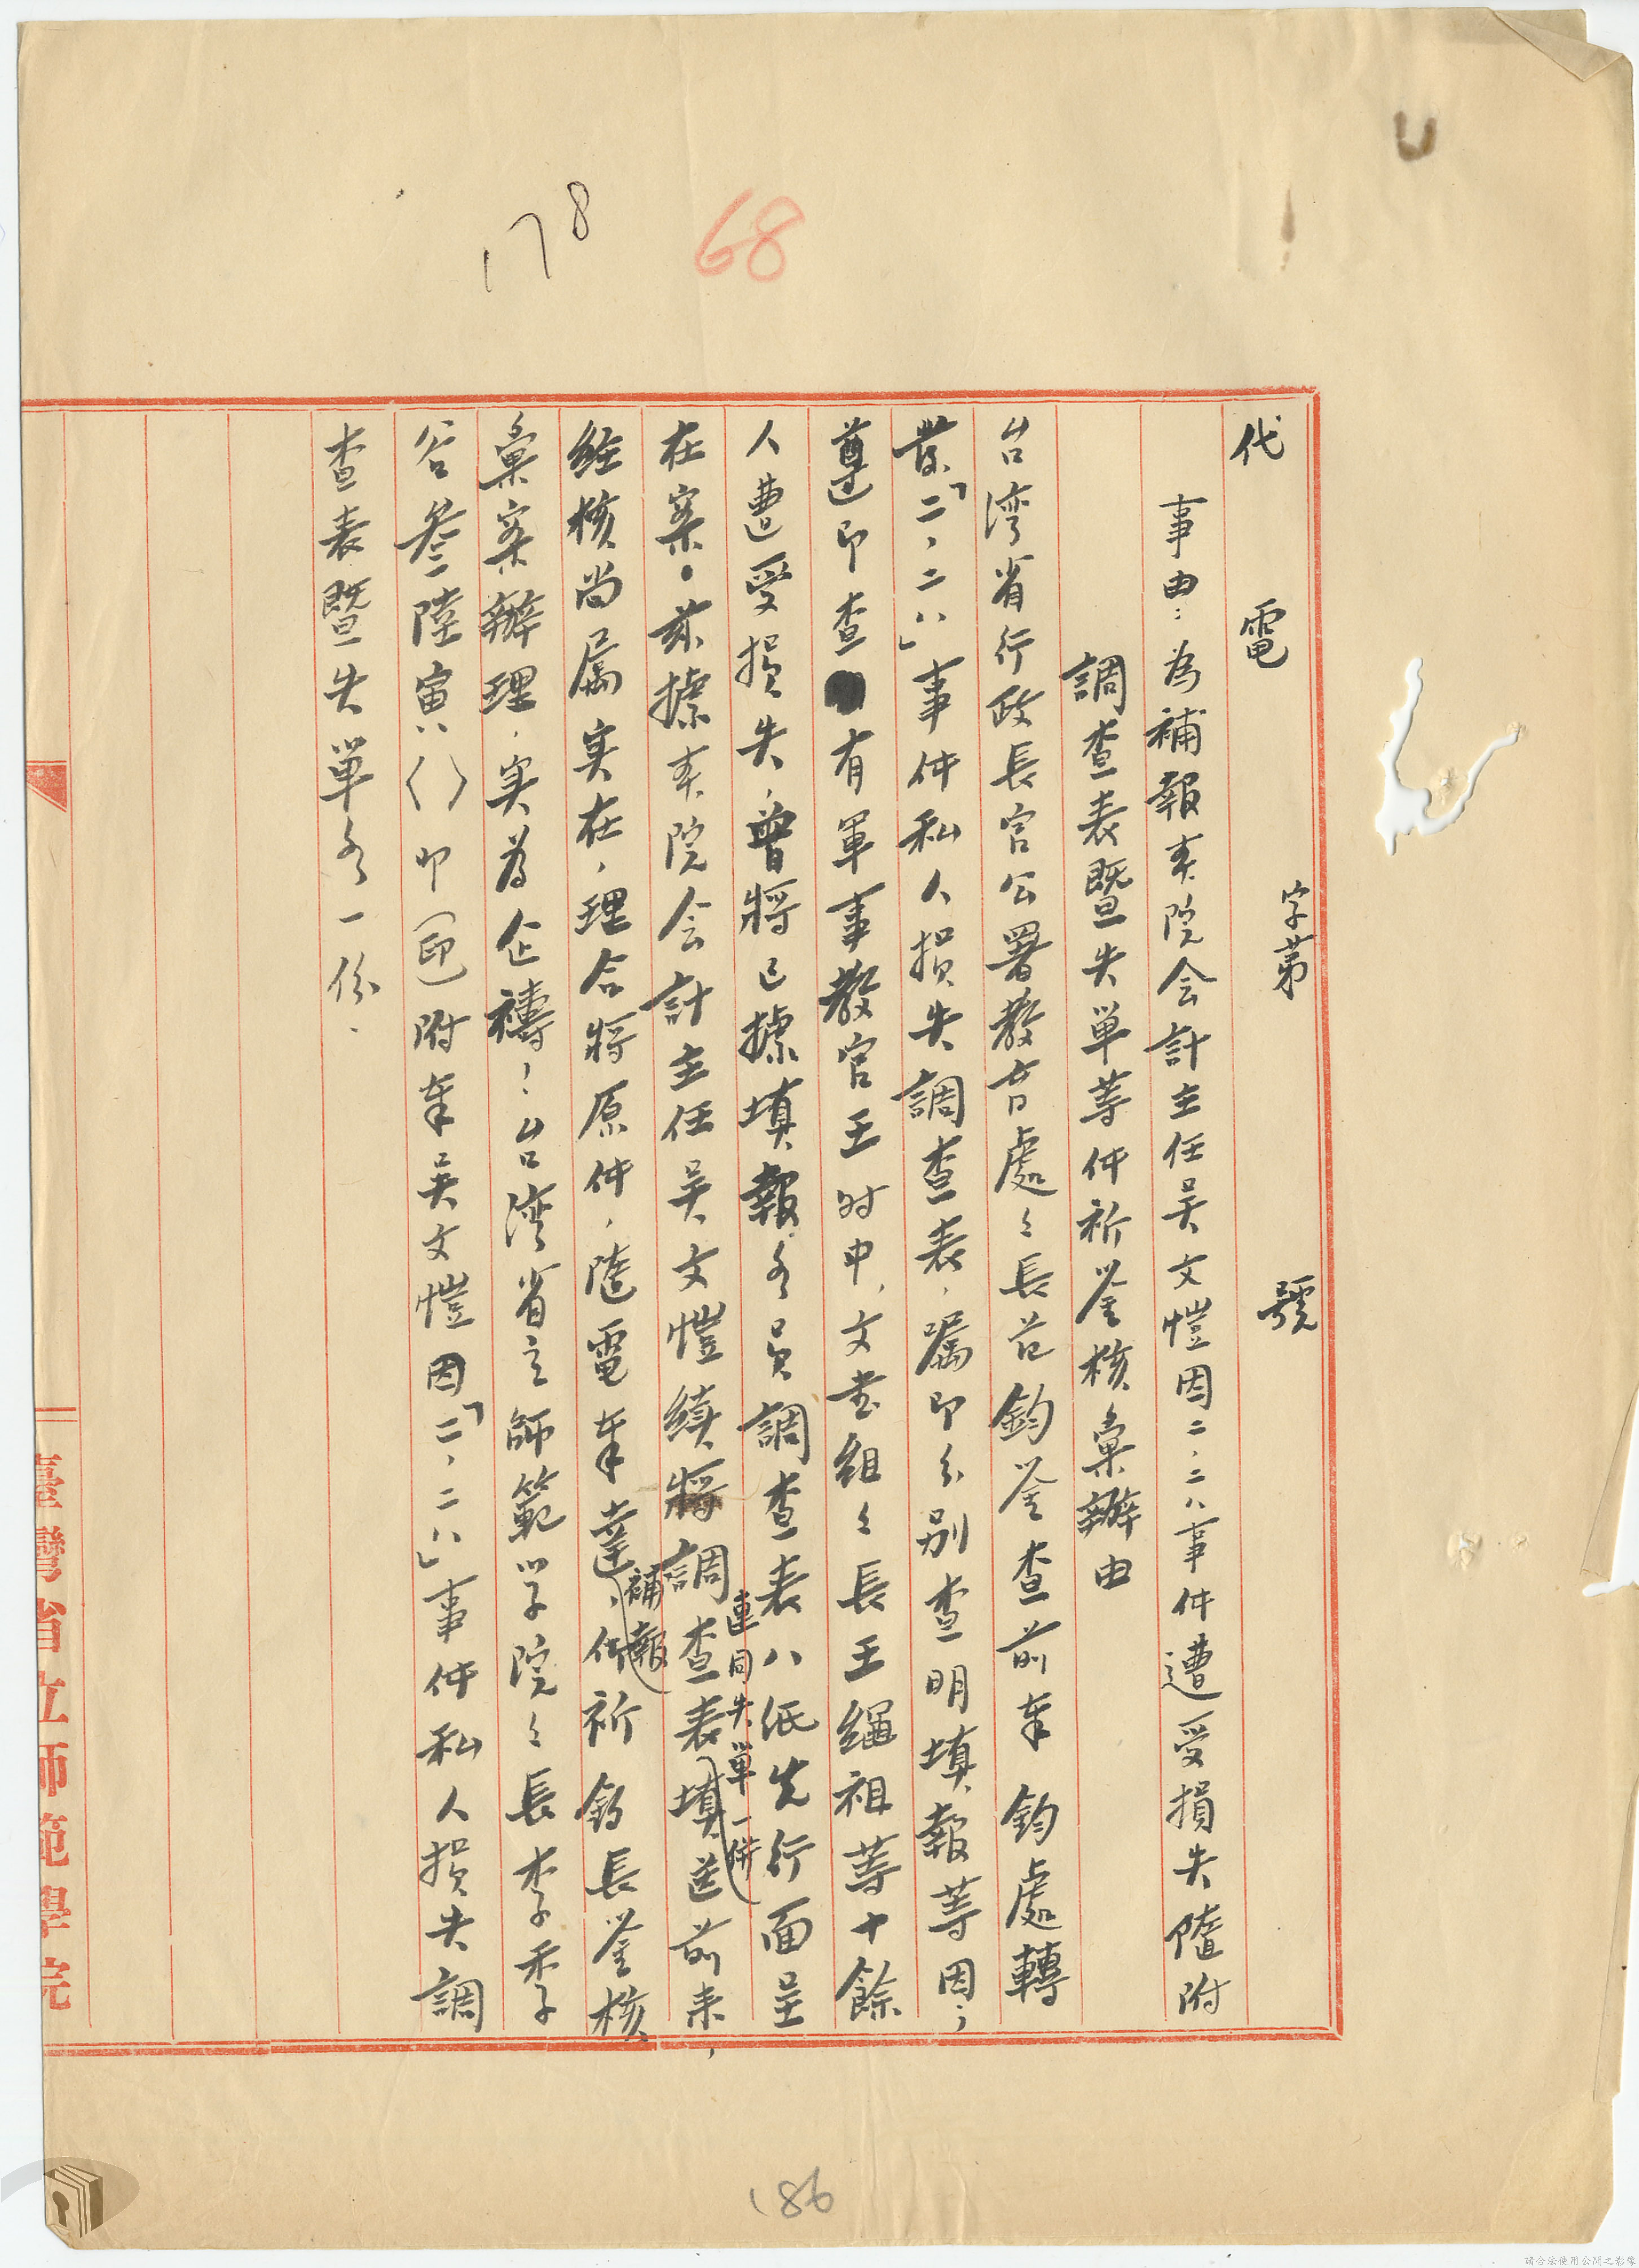 178
68
代電 字第 號
事由：為補報本院会計主任吴文愷因二、二八事件遭受損失隨附
調查表暨失単等件祈鉴核彙辦由
台湾省行政長官公署教育處々長范鈞鉴查前奉 鈞處轉
發「二、二八」事件私人損失調查表，屬即分別查明填報等因；
遵即查有軍事教官王时中，文書组々長王繩祖等十餘
人遭受損失，曾將已據填報各員調查表八纸先行面呈
在案。茲據本院会計主任吴文愷续將調查表連同失單一併填送前来，
经核尚屬实在，理合將原件，隨電奉達、補報祈 鈞長鉴核
彙案辦理，实為企禱！台湾省立師範学院々長李季
谷叁陸寅八〈〉印（印）附奉吴文愷因「二、二八」事件私人損失調
查表暨失單各一份．
臺灣省立師範學院
186
請合法使用公開之影像